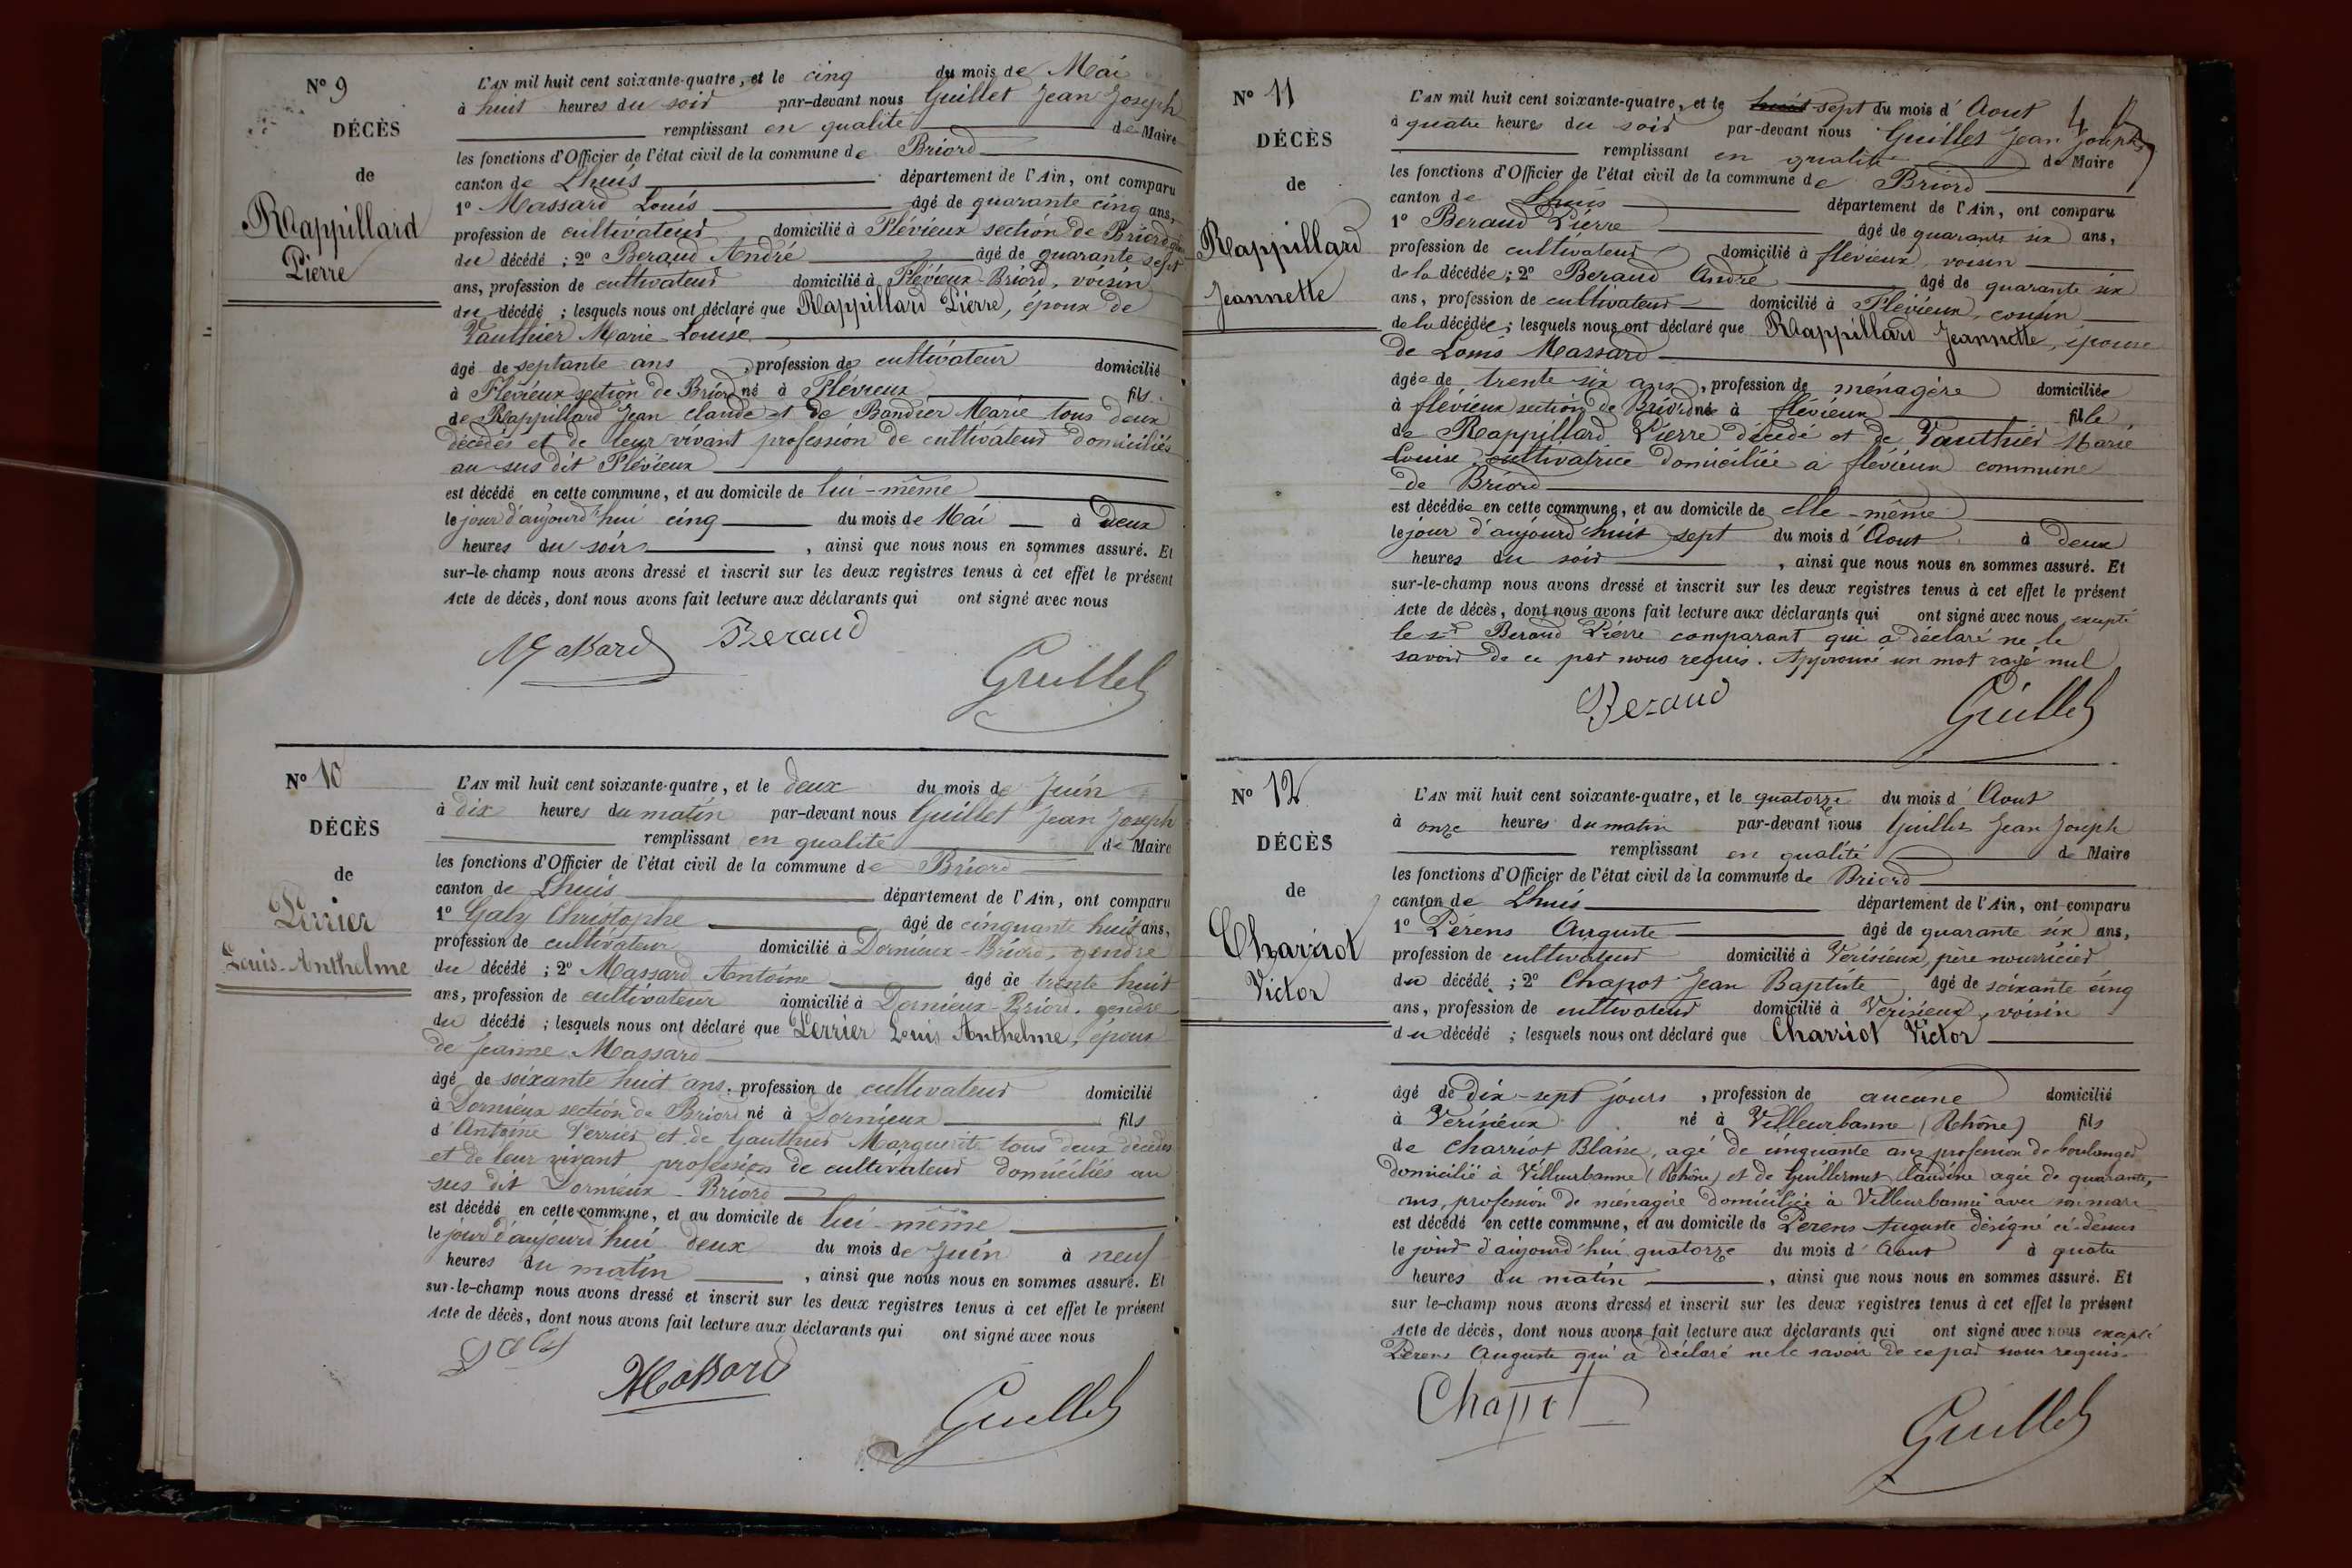 N° 9
DÉCÈS
de
Rappillard
Pierre
L'AN mil huit cent soixante-quatre, et le cinq du mois de Mai
à huit heures du soir par-devant nous Guillet Jean Joseph
remplissant en qualité de Maire
les fonctions d'Officier de l'état civil de la commune de Briord
canton de Lhuis département de l'Ain, ont comparu
1° Massard Louis âgé de quarante cinq ans,
profession de cultivateur domicilié à Flévieux section de Briord
du décédé ; 2° Beraud André âgé de quarante sept
ans, profession de cultivateur domicilié à Flévieux-Briord, voisin
du décédé ; lesquels nous ont déclaré que Rappillard Pierre, époux de
Vauthier Marie-Louise
âgé de septante ans, profession de cultivateur domicilié
à Flévieux section de Briord né à Flévieux fils
de Rappillard Jean Claude et de Bandier Marie tous deux
décédés et de leur vivant profession de cultivateur domiciliés
au sus dit Flévieux
est décédé en cette commune, et au domicile de lui-même
le jour d'aujourd'hui cinq du mois de Mai à deux
heures du soir, ainsi que nous nous en sommes assuré. Et
sur-le-champ nous avons dressé et inscrit sur les deux registres tenus à cet effet le présent
Acte de décès, dont nous avons fait lecture aux déclarants qui ont signé avec nous
Massard Beraud
Guillet
N° 10
DÉCÈS
de
Perrier
Louis-Anthelme
L'AN mil huit cent soixante-quatre, et le deux du mois de Juin
à dix heures du matin par-devant nous Guillet Jean Joseph
remplissant en qualité de Maire
les fonctions d'Officier de l'état civil de la commune de Briord
canton de Lhuis département de l'Ain, ont comparu
1° Galy Christophe âgé de cinquante huit ans,
profession de cultivateur domicilié à Dornieux-Briord, gendre
du décédé ; 2° Massard Antoine âgé de trente huit
ans, profession de cultivateur domicilié à Dornieux-Briord, gendre
du décédé ; lesquels nous ont déclaré que Perrier Louis Anthelme, époux
de Jeanne Massard
âgé de soixante huit ans, profession de cultivateur domicilié
à Dornieux section de Briord né à Dornieux fils
d'Antoine Perrier et de Gauthier Marguerite tous deux décédés
et de leur vivant profession de cultivateur domiciliés au
sus dit Dornieux-Briord
est décédé en cette commune, et au domicile de lui-même
le jour d'aujourd'hui deux du mois de Juin à neuf
heures du matin, ainsi que nous nous en sommes assuré. Et
sur-le-champ nous avons dressé et inscrit sur les deux registres tenus à cet effet le présent
Acte de décès, dont nous avons fait lecture aux déclarants qui ont signé avec nous
Massard
Guillet
N° 11
DÉCÈS
de
Rappillard
Jeannette
L'AN mil huit cent soixante-quatre, et le huit sept du mois d'Aout
à quatre heures du soir par-devant nous Guillet Jean Joseph
remplissant en qualité de Maire
les fonctions d'Officier de l'état civil de la commune de Briord
canton de Lhuis département de l'Ain, ont comparu
1° Beraud Pierre âgé de quarante six ans,
profession de cultivateur domicilié à flévieux, voisin
de la décédée ; 2° Beraud André âgé de quarante six
ans, profession de cultivateur domicilié à Flévieux, cousin
de la décédée ; lesquels nous ont déclaré que Rappillard Jeannette, épouse
de Louis Massard
âgée de trente six ans, profession de ménagère domiciliée
à flévieux section de Briord né à flévieux fille
de Rappillard Pierre décédé et de Vauthier Marie
Louise cultivatrice domiciliée à flévieux commune
de Briord
est décédée en cette commune, et au domicile de elle-même
le jour d'aujourd'huit sept du mois d'Aout à deux
heures du soir, ainsi que nous nous en sommes assuré. Et
sur-le-champ nous avons dressé et inscrit sur les deux registres tenus à cet effet le présent
Acte de décès, dont nous avons fait lecture aux déclarants qui ont signé avec nous excepté
le sr Beraud Pierre comparant qui a déclaré ne le
savoir de ce par nous requis. Approuvé un mot rayé nul
Beraud
Guillet
N° 12
DÉCÈS
de
Charriot
Victor
L'AN mil huit cent soixante-quatre, et le quatorze du mois d'Aout
à onze heures du matin par-devant nous Guillet Jean Joseph
remplissant en qualité de Maire
les fonctions d'Officier de l'état civil de la commune de Briord
canton de Lhuis département de l'Ain, ont comparu
1° Pérens Auguste âgé de quarante six ans,
profession de cultivateur domicilié à Vérisieux, père nourricier
du décédé ; 2° Chapot Jean Baptiste âgé de soixante cinq
ans, profession de cultivateur domicilié à Vérisieux, voisin
du décédé ; lesquels nous ont déclaré que Charriot Victor
âgé de dix-sept jours, profession de aucune domicilié
à Vérisieux né à Villeurbanne (Rhône) fils
de Charriot Blaise, agé de cinquante ans profession de boulanger
domicilié à Villeurbanne (Rhône) et de Guillermet Claudine agée de quarante
ans, profession de ménagère domiciliée à Villeurbanne avec son mari
est décédé en cette commune, et au domicile de Perens Auguste désigné ci-dessus
le jour d'aujourd'hui quatorze du mois d'Aout à quatre
heures du matin, ainsi que nous nous en sommes assuré. Et
sur le-champ nous avons dressé et inscrit sur les deux registres tenus à cet effet le présent
Acte de décès, dont nous avons fait lecture aux déclarants qui ont signé avec nous excepté
Pérens Auguste qui a déclaré ne le savoir de ce par nous requis.
Chapot
Guillet